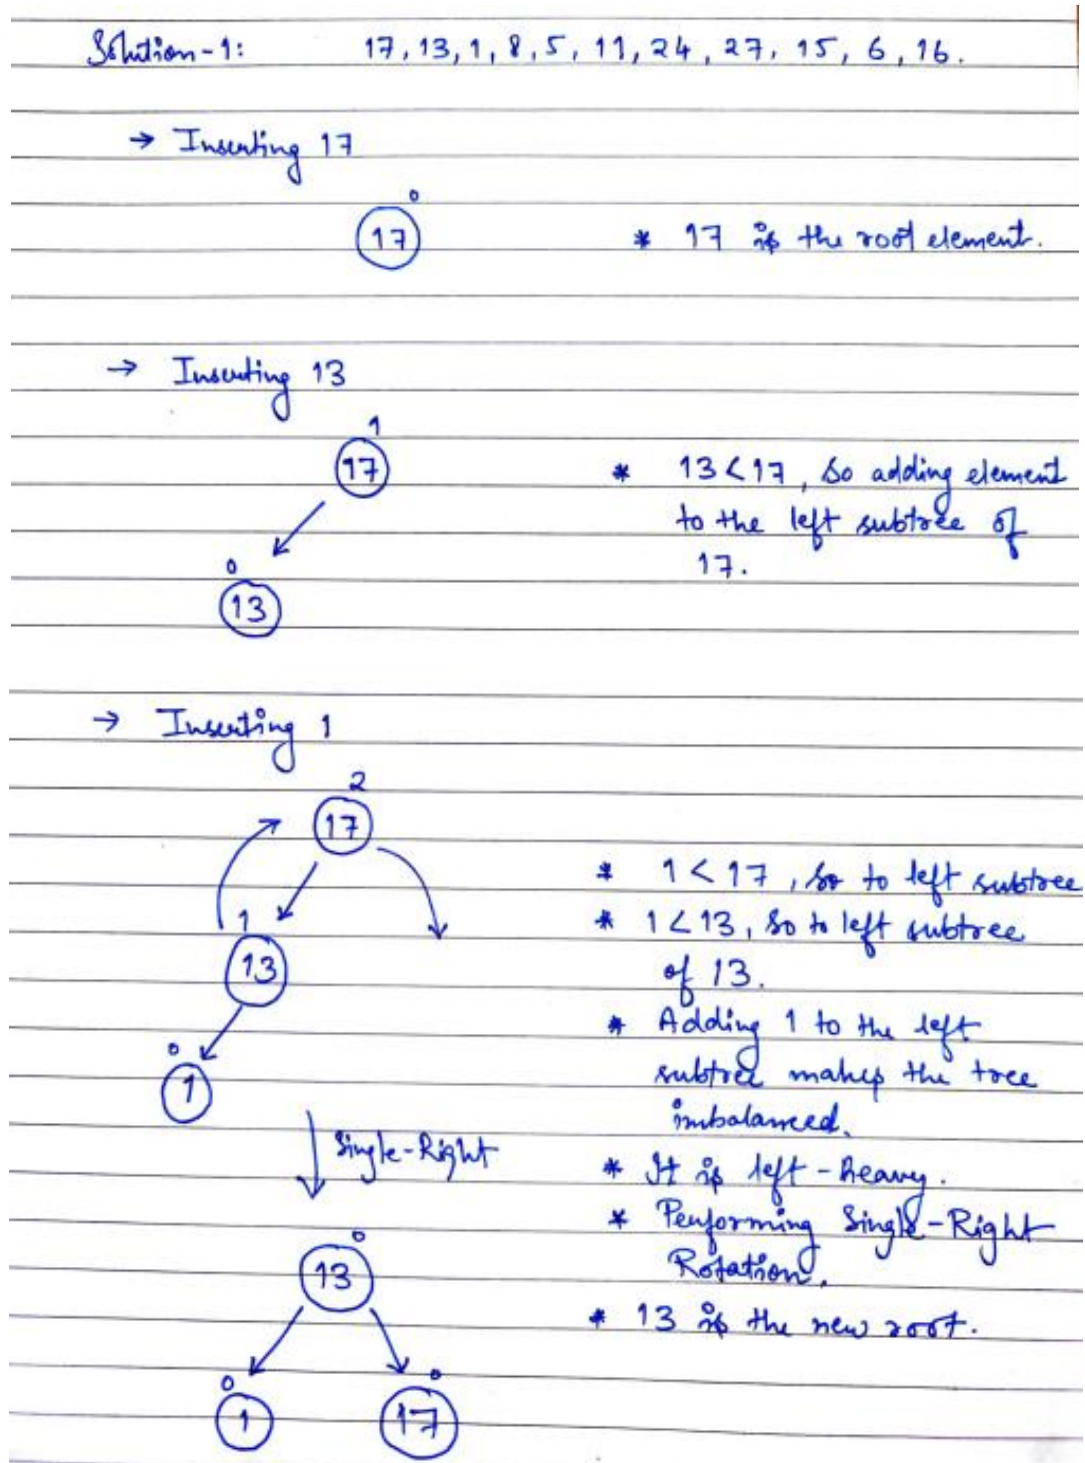 Solution-1: 17, 13, 1, 8, 5, 11, 24, 27, 15, 6, 16.
→ Inserting 17
0
17
* 17 is the root element.
→ Inserting 13
1
17
0
13
* 13 < 17, so adding element
to the left subtree of
17.
→ Inserting 1
2
17
1
13
0
1
* 1 < 17, so to left subtree
* 1 < 13, so to left subtree
of 13.
* Adding 1 to the left
subtree makes the tree
imbalanced.
* It is left-heavy.
* Performing Single-Right
Rotation.
* 13 is the new root.
Single-Right
0
13
0
1
0
17